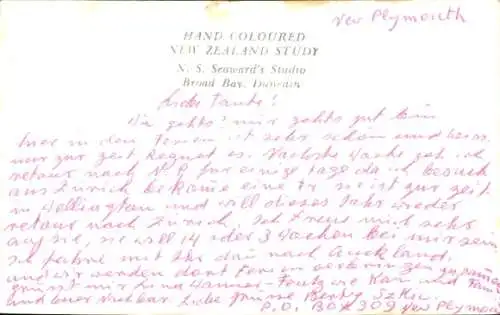 New Plymouth
HAND COLOURED
NEW ZEALAND STUDY
N. S. Seaward's Studio
Broad Bay, Dunedin
Liebe Tante!
Wie gehts? mir gehts gut bin
hier in den Ferien ist sehr schön und heiss
nur zur Zeit Regnet es. Nächste Woche geh ich
retour nach N.P. für einige tage da ich besuch
aus Zürich bekome eine Fr sie ist zur zeit
in Wellington und will dieses Jahr wieder
retour nach Zürich. Ich freue mich sehr
auf sie, sie will 14 oder 3 Wochen bei mir sein
Ich fahre mit ihr dan nach Auckland,
und wir werden dort Ferien verbringen zusammen
grüsst mir Lina Wanner-Feutz wie Karl und Fam
und euer Nachbar. Liebe grüsse Berty Szku
P.O. BOX 309 New Plymouth